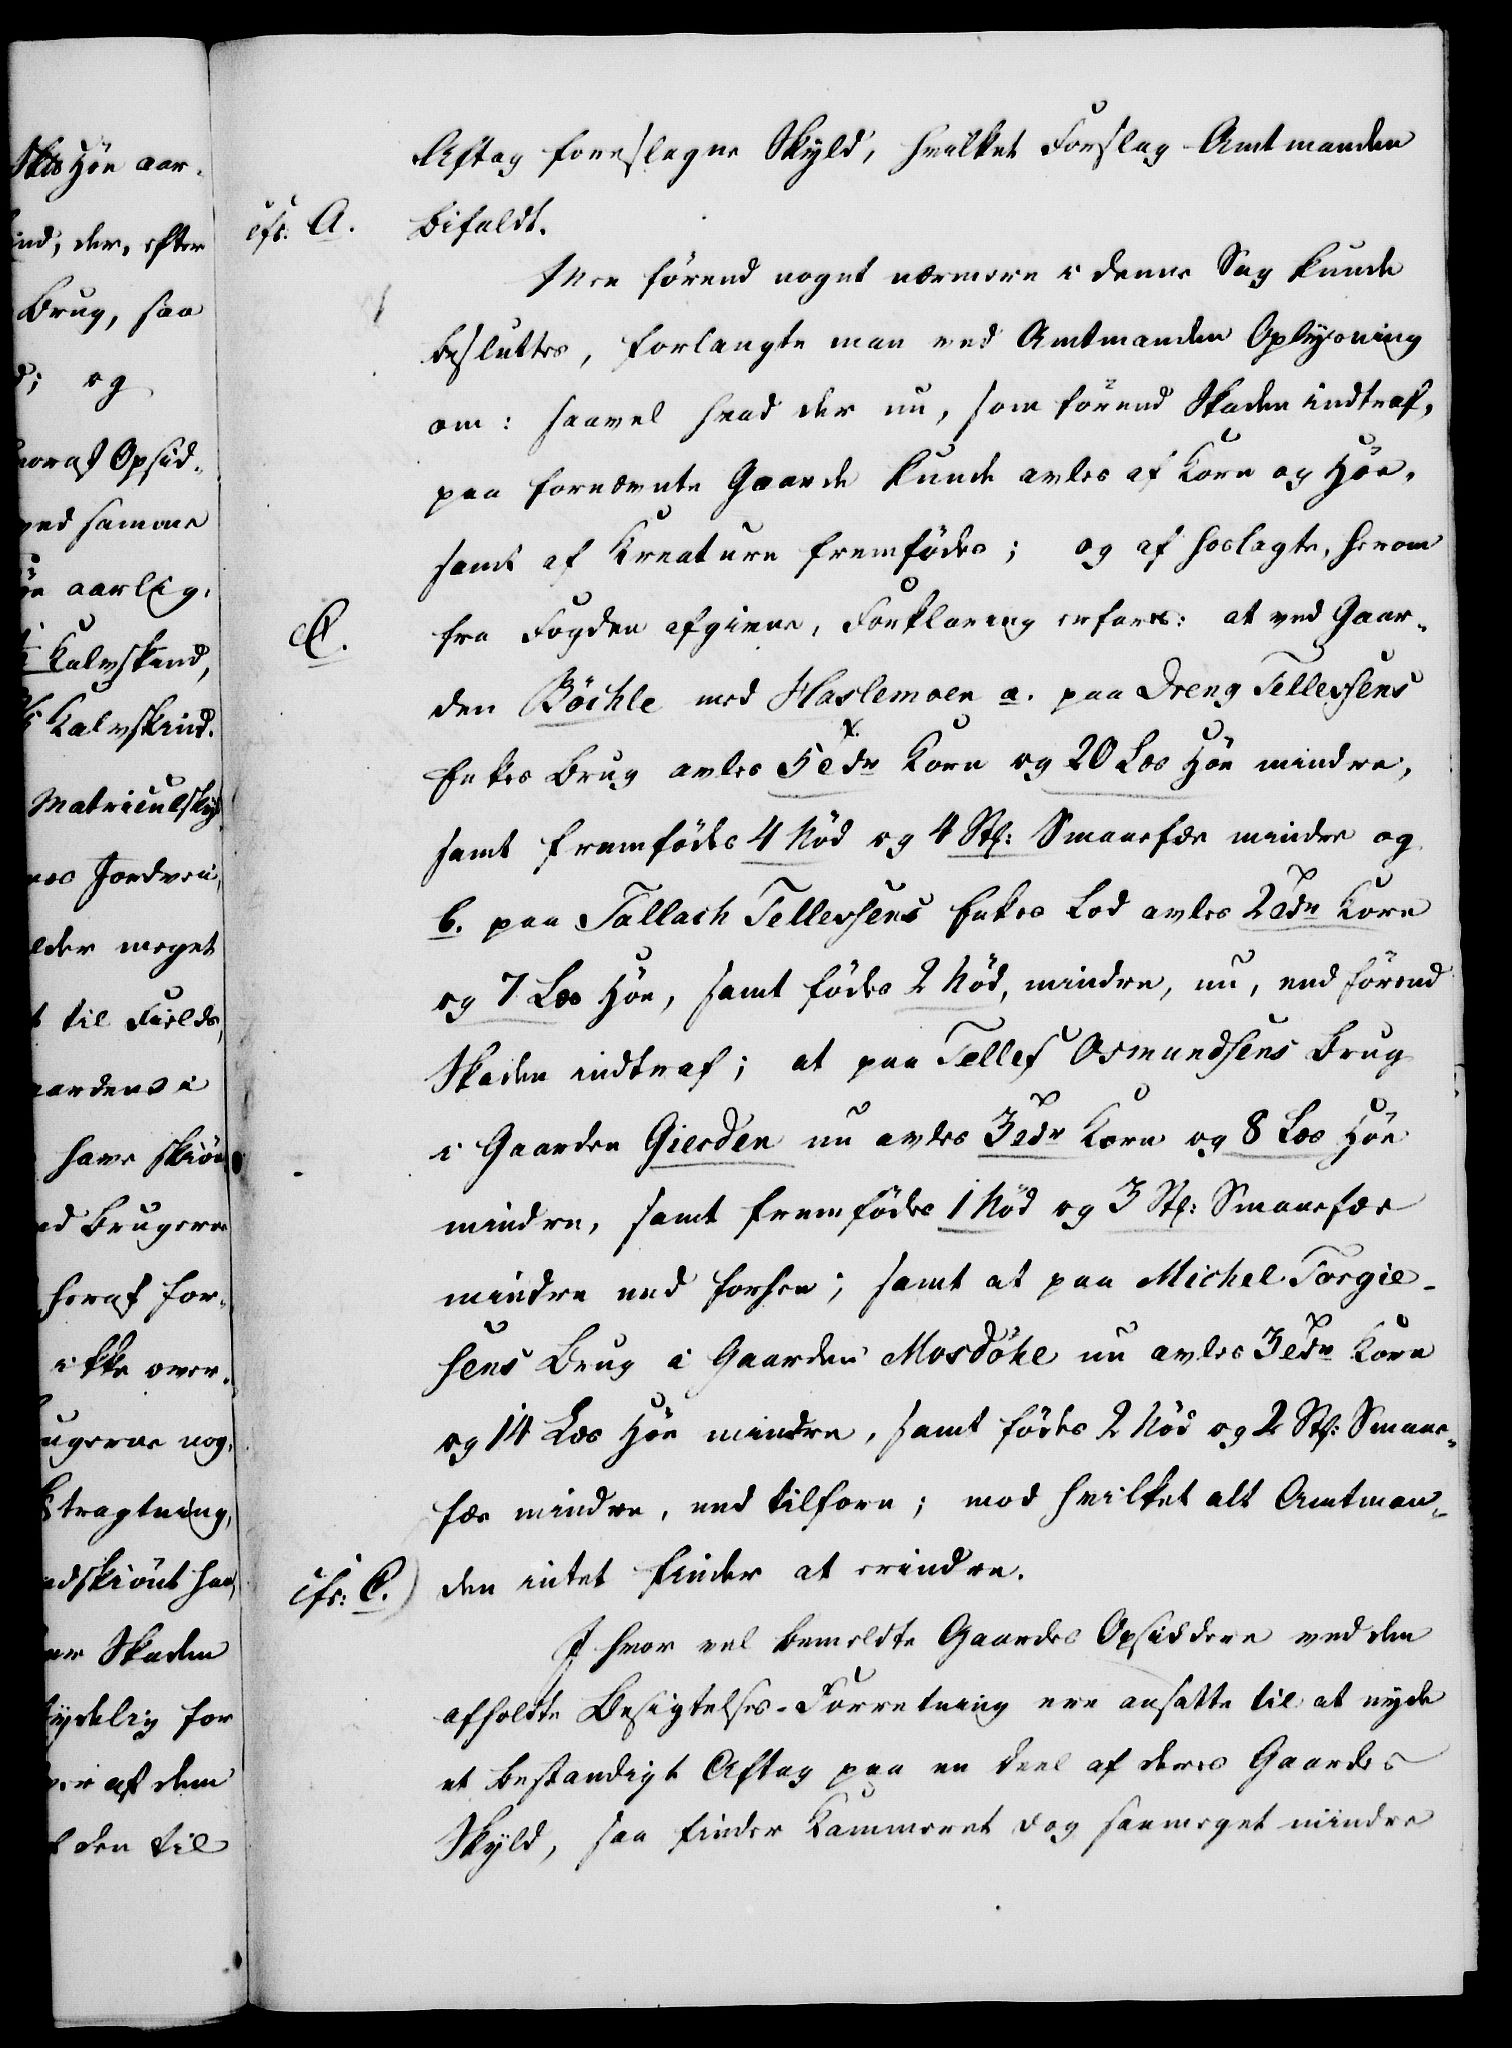 Skts Höe aar-
ind; der, efter
Brug, saa
d; og
horaf Opsid-
ved samme
aarlig.
Kalvskind,
Kalvskind.
Matriculskyl
nes Jordvei,
lder meget
t til Fields
aardens i
have skiön
ed Brugerne
heraf for-
ikke over-
ugerne nog-
tragtning,
dskiönt han
er Skaden
tydelig for
ver af dem
t den til
Aftag foreslagne Skyld, hvilket Forslag Amtmanden
cfr: A. bifaldt.
Men förend noget nærmere i denne Sag kunde
besluttes, forlangte man ved Amtmanden Oplysning
om: saavel hvad der nu, som förend Skaden indtraf,
paa fornævnte Gaarde kunde avles af Korn og Höe,
samt af Kreature fremfödes; og af hoslagte, herom
C. fra Fogden afgivne, Forklaring erfares: at ved Gaar-
den Böchle med Haslemoen a. paa Dreng Tellefsens
Enkes Brug avles 5 Tdr Korn og 20 Læs Höe mindre,
samt fremfödes 4 Nöd og 4 Stk: Smaafæe mindre og
b. paa Tallach Tellefsens Enkes Lod avles 2 Tdr Korn
og 7 Læs Höe, samt födes 2 Nöd, mindre, nu, end förend
Skaden indtraf; at paa Tellef Osmundsens Brug
i Gaarden Gierden nu avles 3 Tdr Korn og 8 Læs Höe
mindre, samt fremfödes 1 Nöd og 3 Stk: Smaafæe
mindre end forhen; samt at paa Michel Torgie-
sens Brug i Gaarden Mosdöhl nu avles 3 Tdr Korn
og 14 Læs Höe mindre, samt födes 2 Nöd og 2 Stk: Smaae-
fæe mindre, end tilforn; mod hvilket alt Amtman-
cfr: C.) den intet finder at erindre.
I hvor vel bemeldte Gaardes Opsiddere ved den
afholdte Besigtelses-Forretning ere ansatte til at nyde
et bestandigt Aftag paa en Deel af deres Gaardes
Skyld, saa finder Kammeret dog saameget mindre